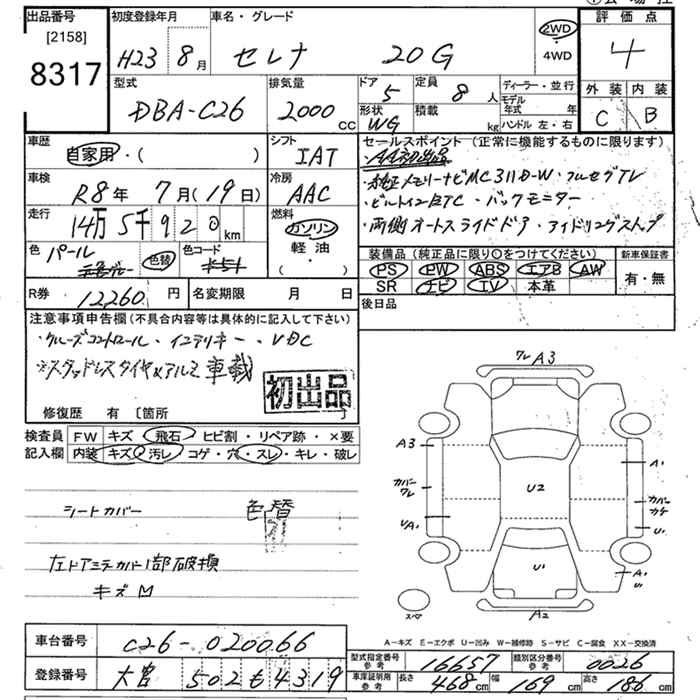 出品番号 初度登録年月 車名・グレード 評価点
[2158]
8317
H23 8月 セレナ 20G 2WD・4WD 4
型式 排気量 ドア 定員 ディーラー・並行 外装 内装
DBA-C26 2000cc 5 8人 モデル年式 年 C B
形状 積載
WG kg ハンドル 左・右
車歴 シフト セールスポイント (正常に機能するものに限ります)
自家用・( ) IAT ・AA初出品
車検 冷房 ・純正メモリーナビMC311D-W・フルセグTV
R8年 7月(19日) AAC ・ビルトインETC・バックモニター
走行 燃料 ・両側オートスライドドア・アイドリングストップ
14万5千920km ガソリン・軽油・( )
色 パール 色替 色コード
装備品 (純正品に限り○をつけてください) 新車保証書
PS PW ABS エアB AW 有・無
SR ナビ TV 本革
R券 12260円 名変期限 月 日 後日品
注意事項申告欄 (不具合内容等は具体的に記入して下さい)
・クルーズコントロール・インテリキー・VDC
※スタッドレスタイヤ×アルミ車載
初出品
修復歴 有 〔箇所
検査員 FW キズ・飛石・ヒビ割・リペア跡・×要
記入欄 内装 キズ・汚レ・コゲ・穴・スレ・キレ・破レ
シートカバー 色替
左ドアミラーカバー1部破損
キズM
ワレ A3
A3 A1
カバーワレ U2 カバーカケ
UA1 U1
U1 A1 U1
スペア A2
A-キズ E-エクボ U-凹み W-補修跡 S-サビ C-腐食 XX-交換済
車台番号 C26-020066
型式指定番号参考 16657 類別区分番号参考 0026
登録番号 大宮 502 も 4319
車庫証明用参考 長さ 468cm 幅 169cm 高さ 186cm